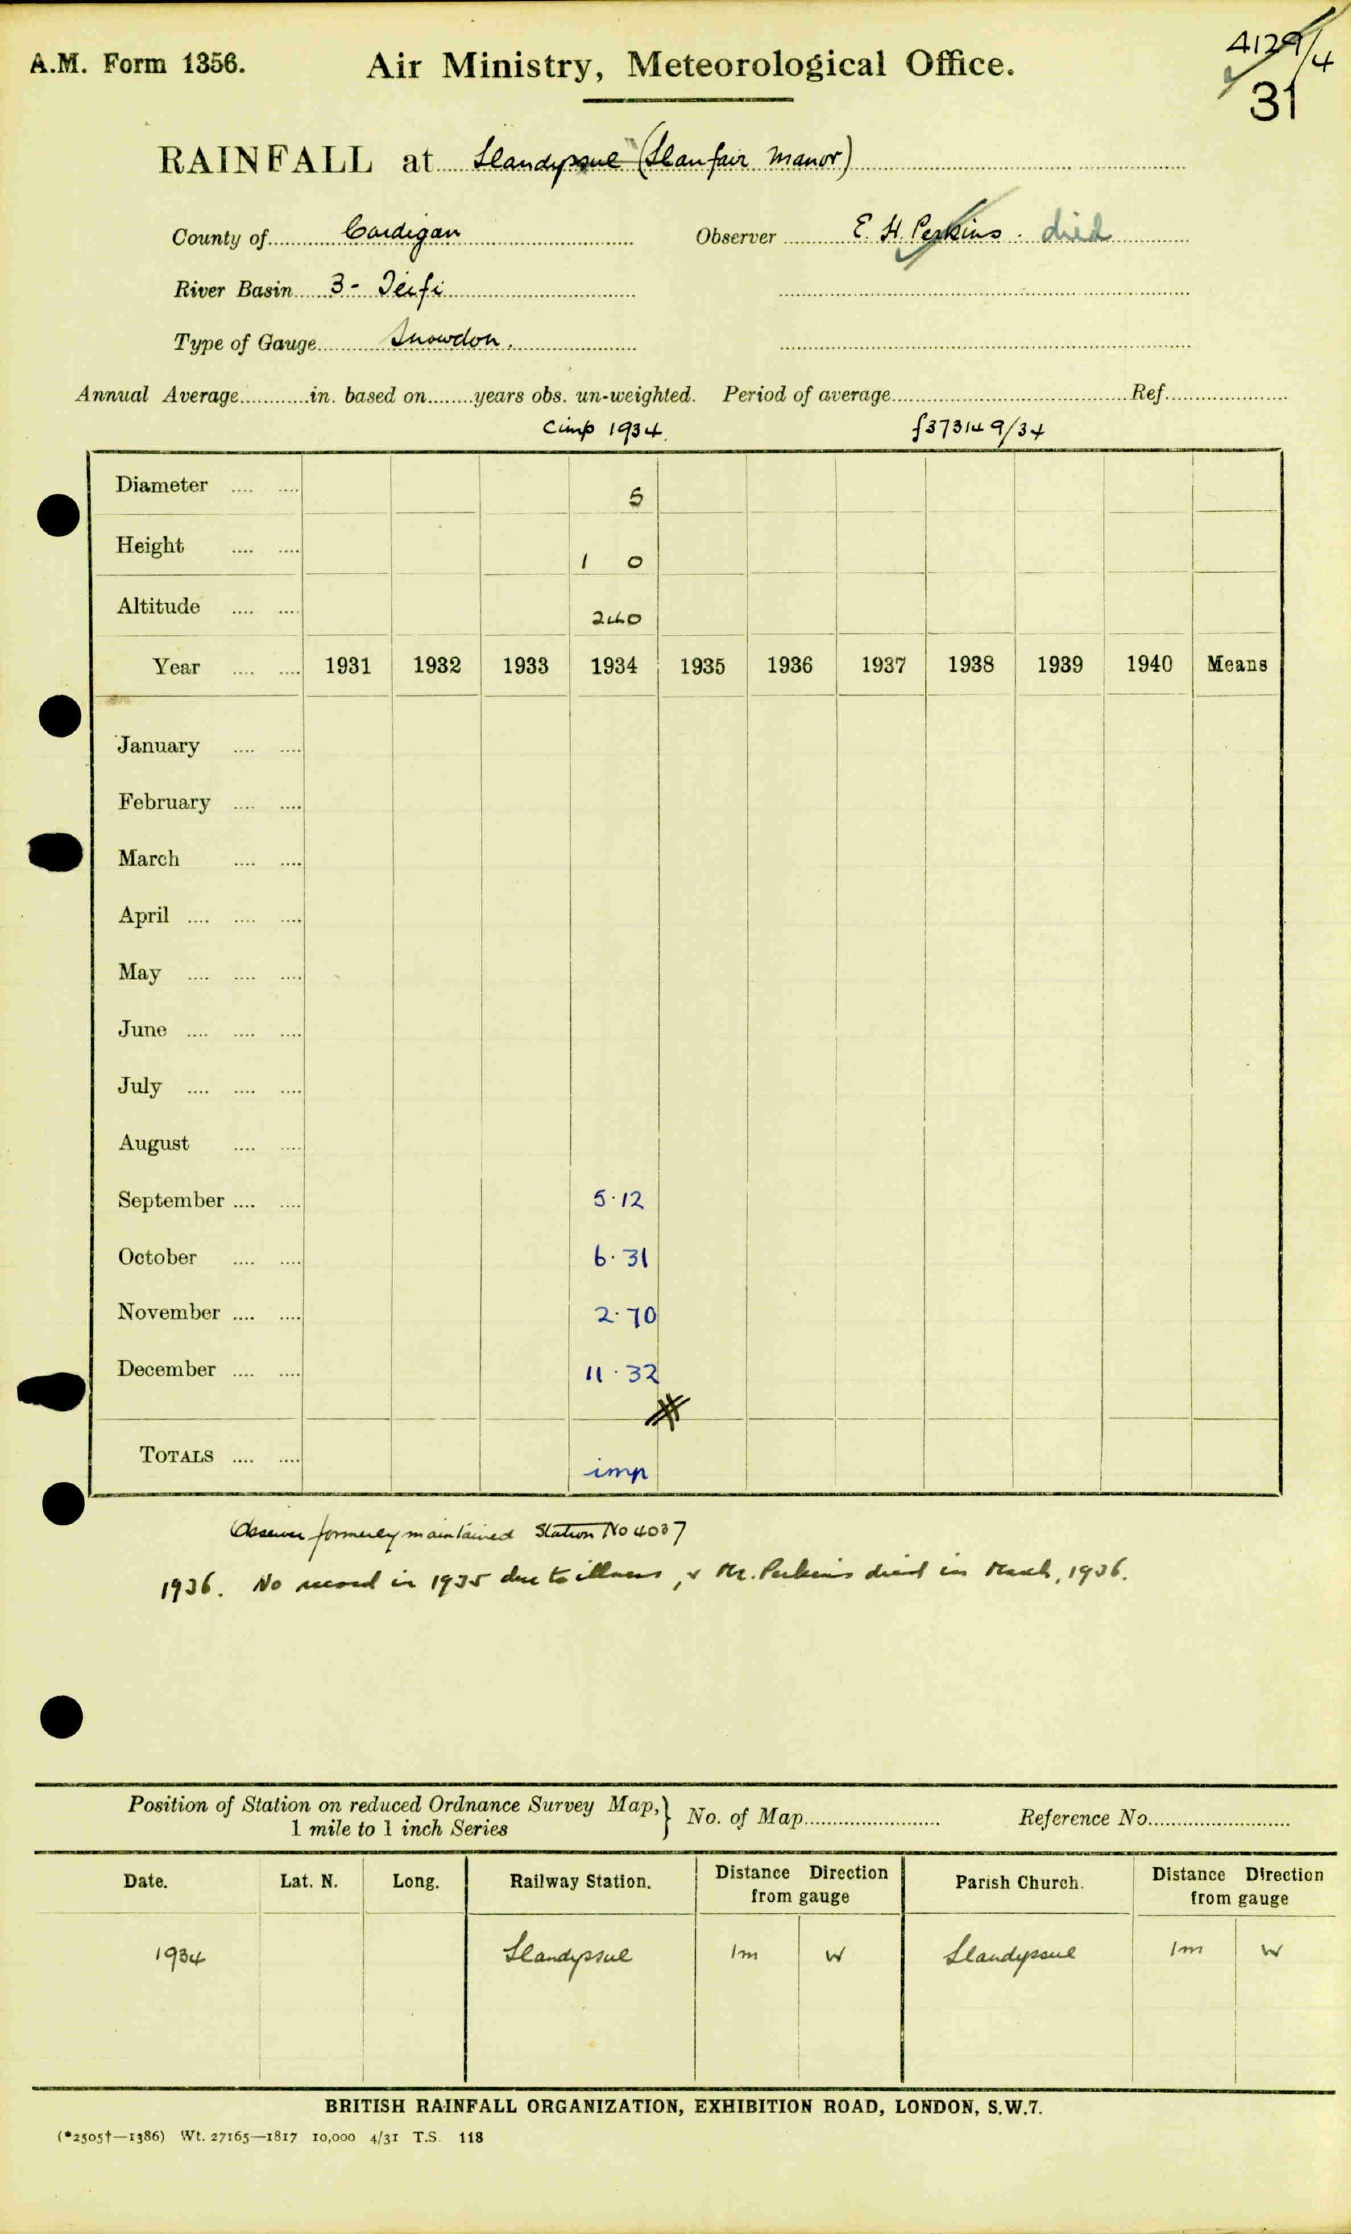 A.M. Form 1356.
Air Ministry, Meteorological Office.
4129/4
31
RAINFALL at Llandyssul (Llanfair Manor)
County of Cardigan Observer E. H. Perkins. died
River Basin 3 - Teifi
Type of Gauge Snowdon.
Annual Average in. based on years obs. un-weighted. Period of average Ref.
1934. 373149/34
Diameter 5
Height 1 0
Altitude 240
Year 1931 1932 1933 1934 1935 1936 1937 1938 1939 1940 Means
January
February
March
April
May
June
July
August
September 5.12
October 6.31
November 2.70
December 11.32
TOTALS imp
Observer formerly maintained Station No 4037
1936. No record in 1935 due to illness, & Mr. Perkins died in March, 1936.
Position of Station on reduced Ordnance Survey Map, } No. of Map Reference No.
1 mile to 1 inch Series
Date. Lat. N. Long. Railway Station. Distance Direction from gauge Parish Church. Distance Direction from gauge
1934 Llandyssul 1m W Llandyssul 1m W
BRITISH RAINFALL ORGANIZATION, EXHIBITION ROAD, LONDON, S.W.7.
(*2505†—1386) Wt. 27165—1817 10,000 4/31 T.S. 118